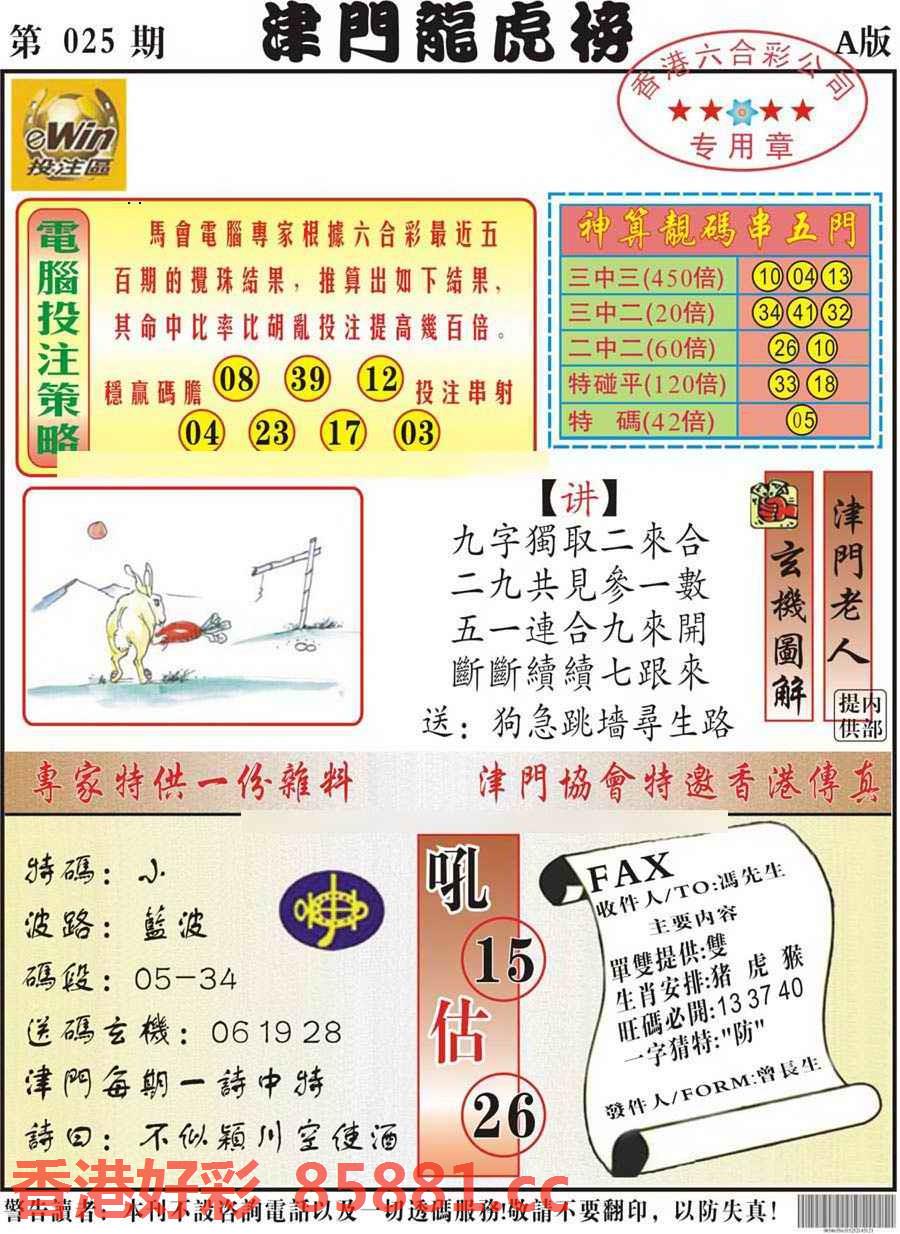 第 025 期
津門龍虎榜
A版
香港六合彩公司
专用章
eWin
投注區
電腦投注策略
馬會電腦專家根據六合彩最近五
百期的攪珠結果，推算出如下結果，
其命中比率比胡亂投注提高幾百倍。
穩贏碼膽 08 39 12 投注串射
04 23 17 03
神算靚碼串五門
三中三(450倍) 10 04 13
三中二(20倍) 34 41 32
二中二(60倍) 26 10
特碰平(120倍) 33 18
特 碼(42倍) 05
【讲】
九字獨取二來合
二九共見參一數
五一連合九來開
斷斷續續七跟來
送：狗急跳墻尋生路
玄機圖解
津門老人
内部提供
專家特供一份雜料
津門協會特邀香港傳真
特碼：小
波路：藍波
碼段：05－34
送碼玄機：06 19 28
津門每期一詩中特
詩曰：不似穎川空使酒
吼
15
估
26
FAX
收件人/TO:馮先生
主要内容
單雙提供:雙
生肖安排:猪 虎 猴
旺碼必開:13 37 40
一字猜特:"防"
發件人/FORM:曾長生
香港好彩 85881.cc
警告讀者：本刊不設咨詢電話以及一切透碼服務!敬請不要翻印，以防失真!